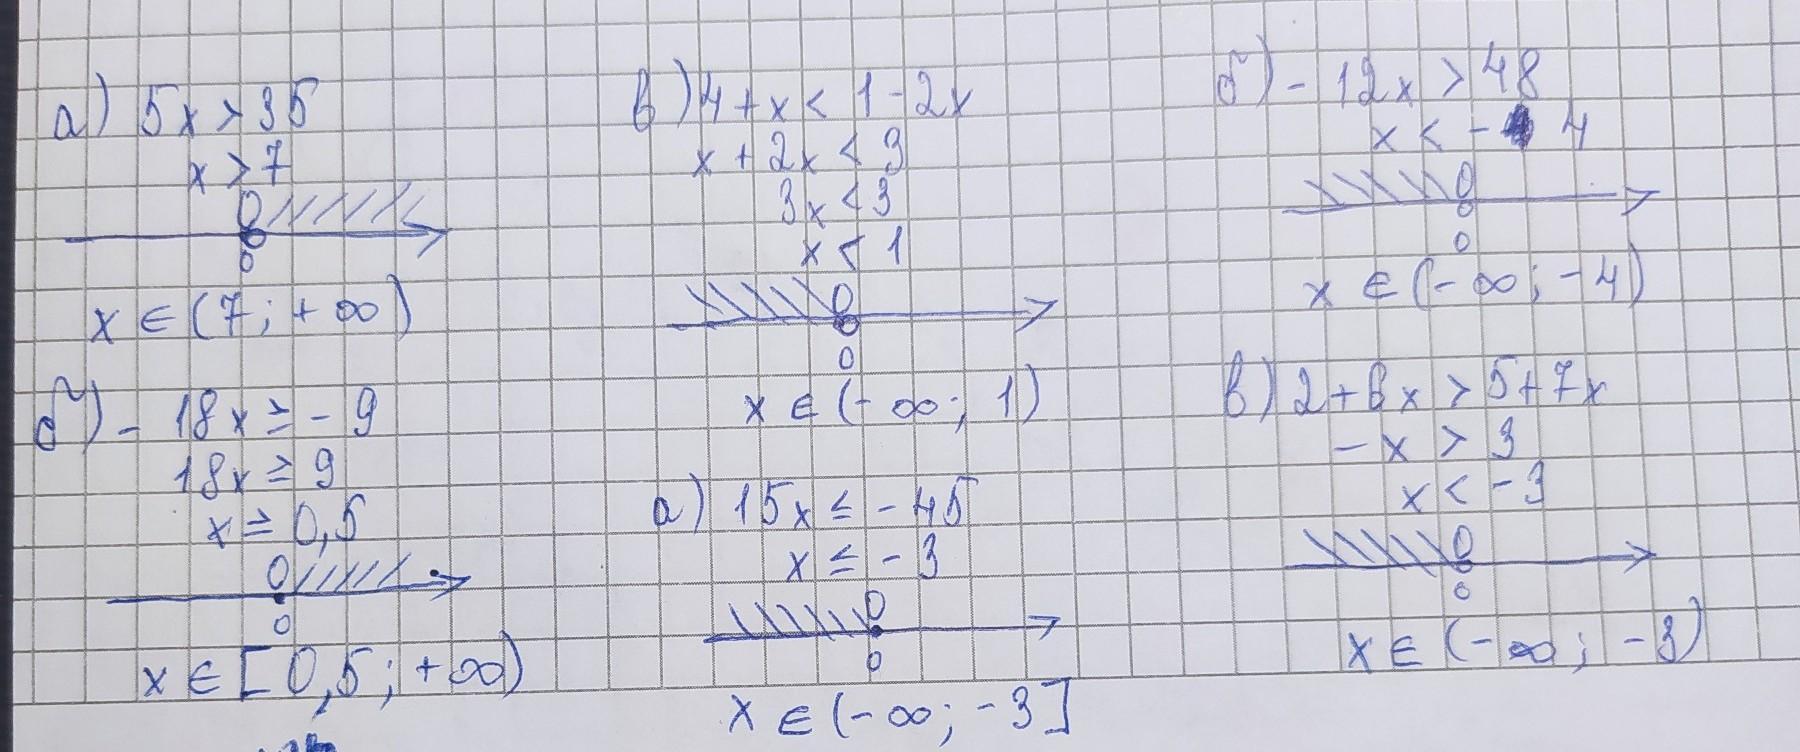 а) 5x > 35
x > 7
0
0
x ∈ (7; +∞)
б) - 18x ≥ - 9
18x ≥ 9
x ≥ 0,5
0
0
x ∈ [0,5; +∞)
в) 4 + x < 1 - 2x
x + 2x < 3
3x < 3
x < 1
0
0
x ∈ (-∞; 1)
а) 15x ≤ - 45
x ≤ - 3
0
0
x ∈ (-∞; -3]
б) - 12x > 48
x < - 4
0
0
x ∈ (-∞; -4)
в) 2 + 6x > 5 + 7x
- x > 3
x < - 3
0
0
x ∈ (-∞; -3)